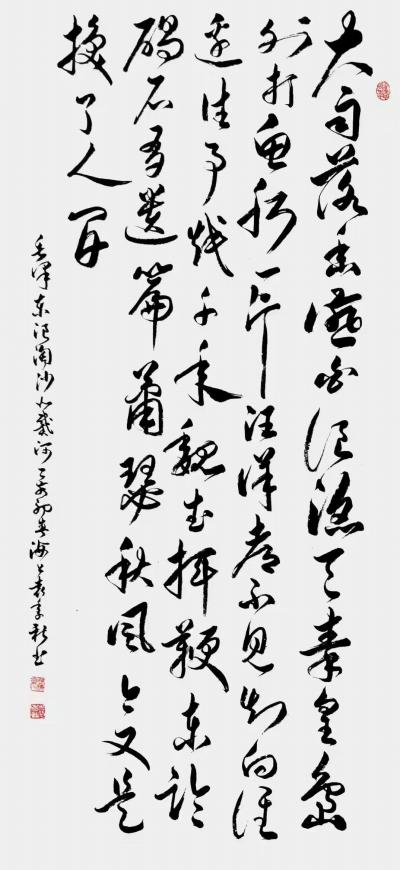 大雨落幽燕白浪滔天秦皇岛
外打鱼船一片汪洋都不见知向谁
边往事越千年魏武挥鞭东临
碣石有遗篇萧瑟秋风今又是
换了人间
毛泽东浪淘沙北戴河 初春海上袁书